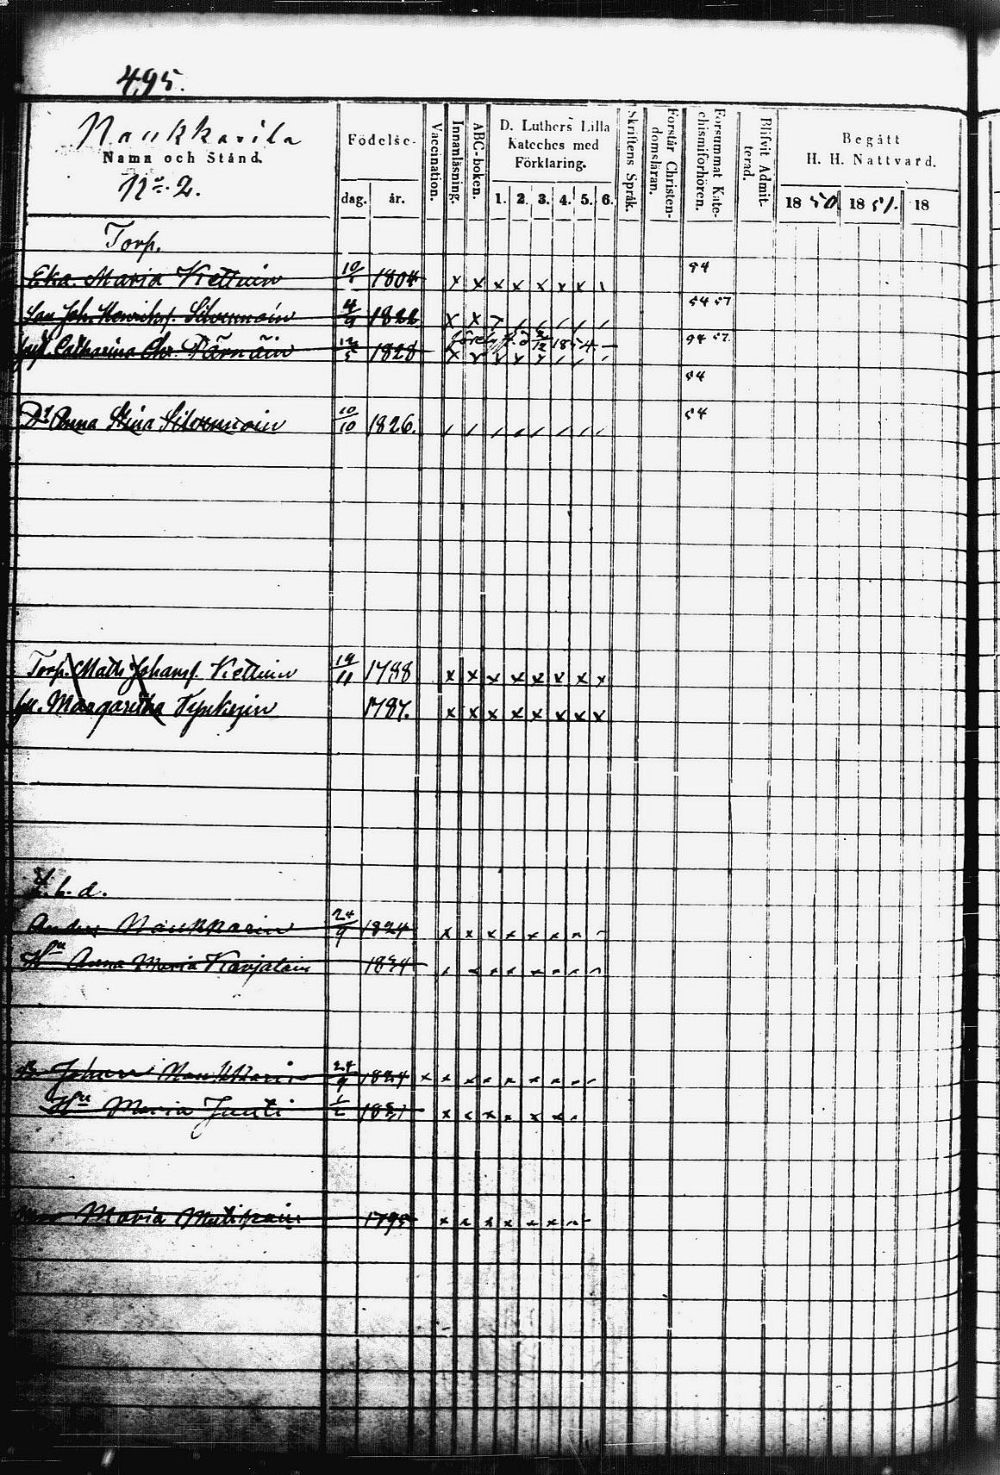 495.
Naukkarila
Namn och Stånd.
No. 2.
Födelse-
dag. år.
Vaccination.
Innanläsning.
ABC-boken.
D. Luthers Lilla
Kateches med
Förklaring.
1. 2. 3. 4. 5. 6.
Skriftens Språk.
Förstår Christen-
domsläran.
Försummat Kate-
chismiförhören.
Blifvit Admit-
terad.
Begått
H. H. Nattvard.
18 50 18 51. 18
Torp.
Enk. Maria Kiettinin 10 1804 x x x x x x x 54
Joh. Henriks. Silvennoin 4/9 1822 x x 54 57
Catharina Chr. Pärnäin 1828 54 57
54
Dr Anna Stina Silvennoin 10/10 1826. 54
Torp. Matts Johans. Kiettinin 19/11 1788 x x x x x x x x
hu. Margaretha 1787. x x x x x x x x
Anders Naukkarin 24/9 1824
Hu Anna Maria Karjalain 1834
Johan Naukkarin 24/9 1824
Hu Maria Junti
Maria 1795